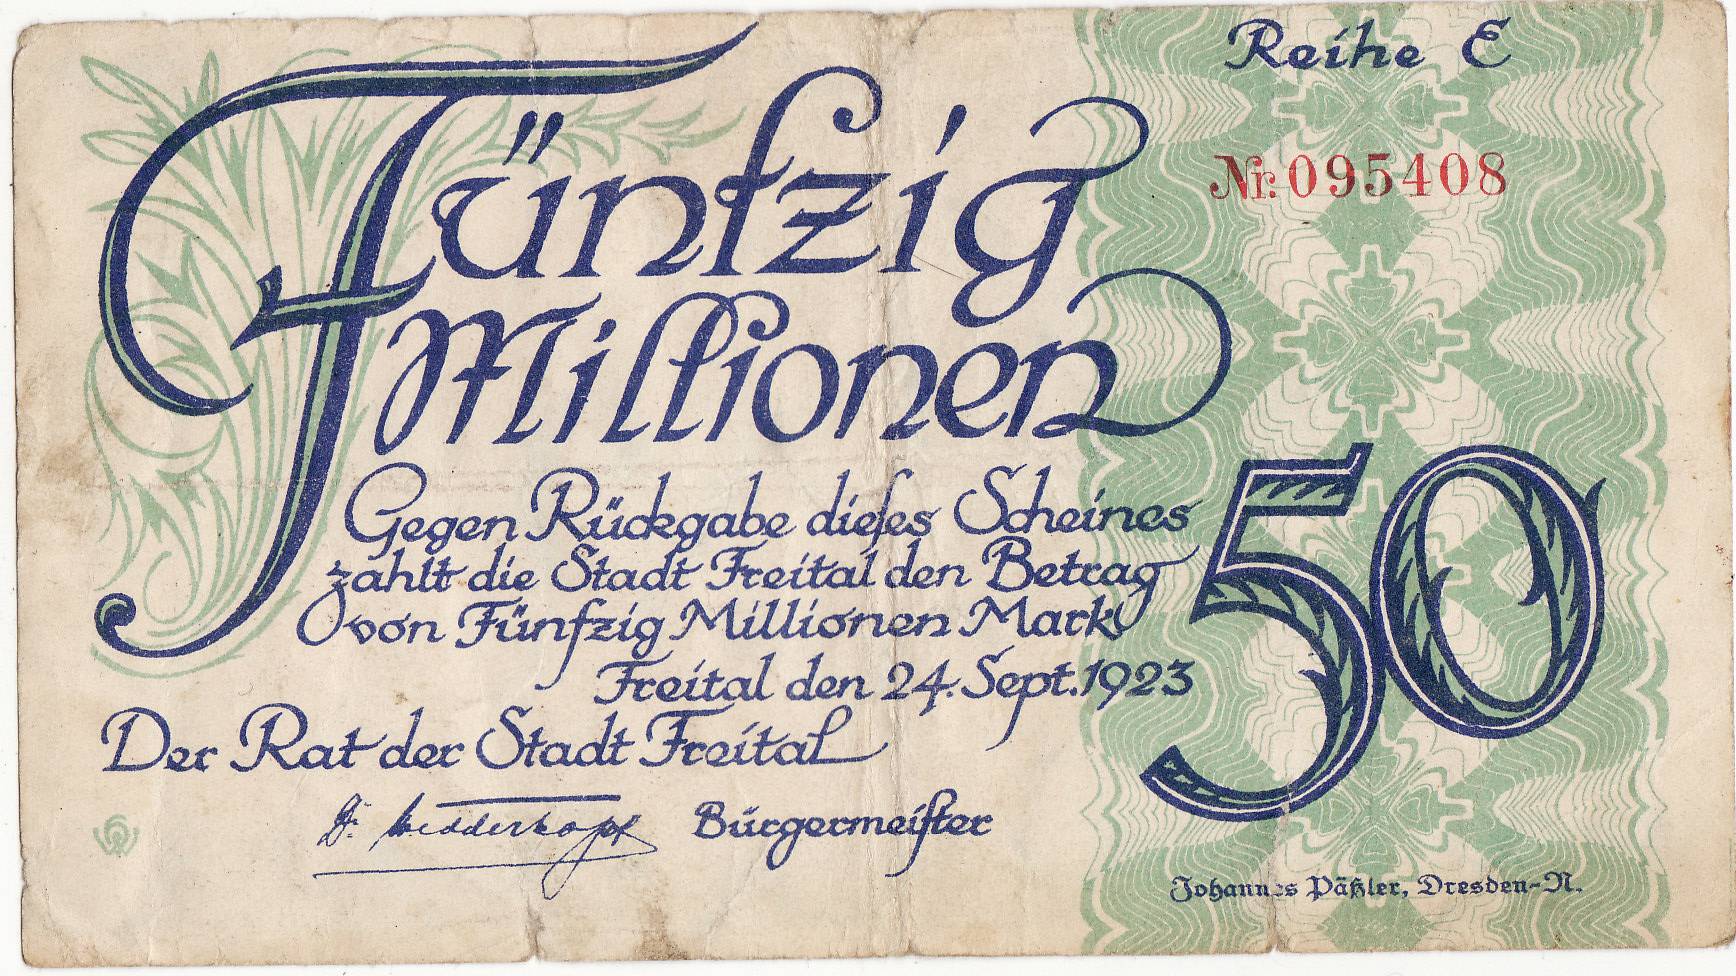 Reihe E
Nr. 095408
Fünfzig
Millionen
Gegen Rückgabe dieſes Scheines
zahlt die Stadt Freital den Betrag
von Fünfzig Millionen Mark
Freital den 24. Sept. 1923
50
Der Rat der Stadt Freital
Dr. Wedderkopf Bürgermeiſter
Johannes Päßler, Dresden-N.